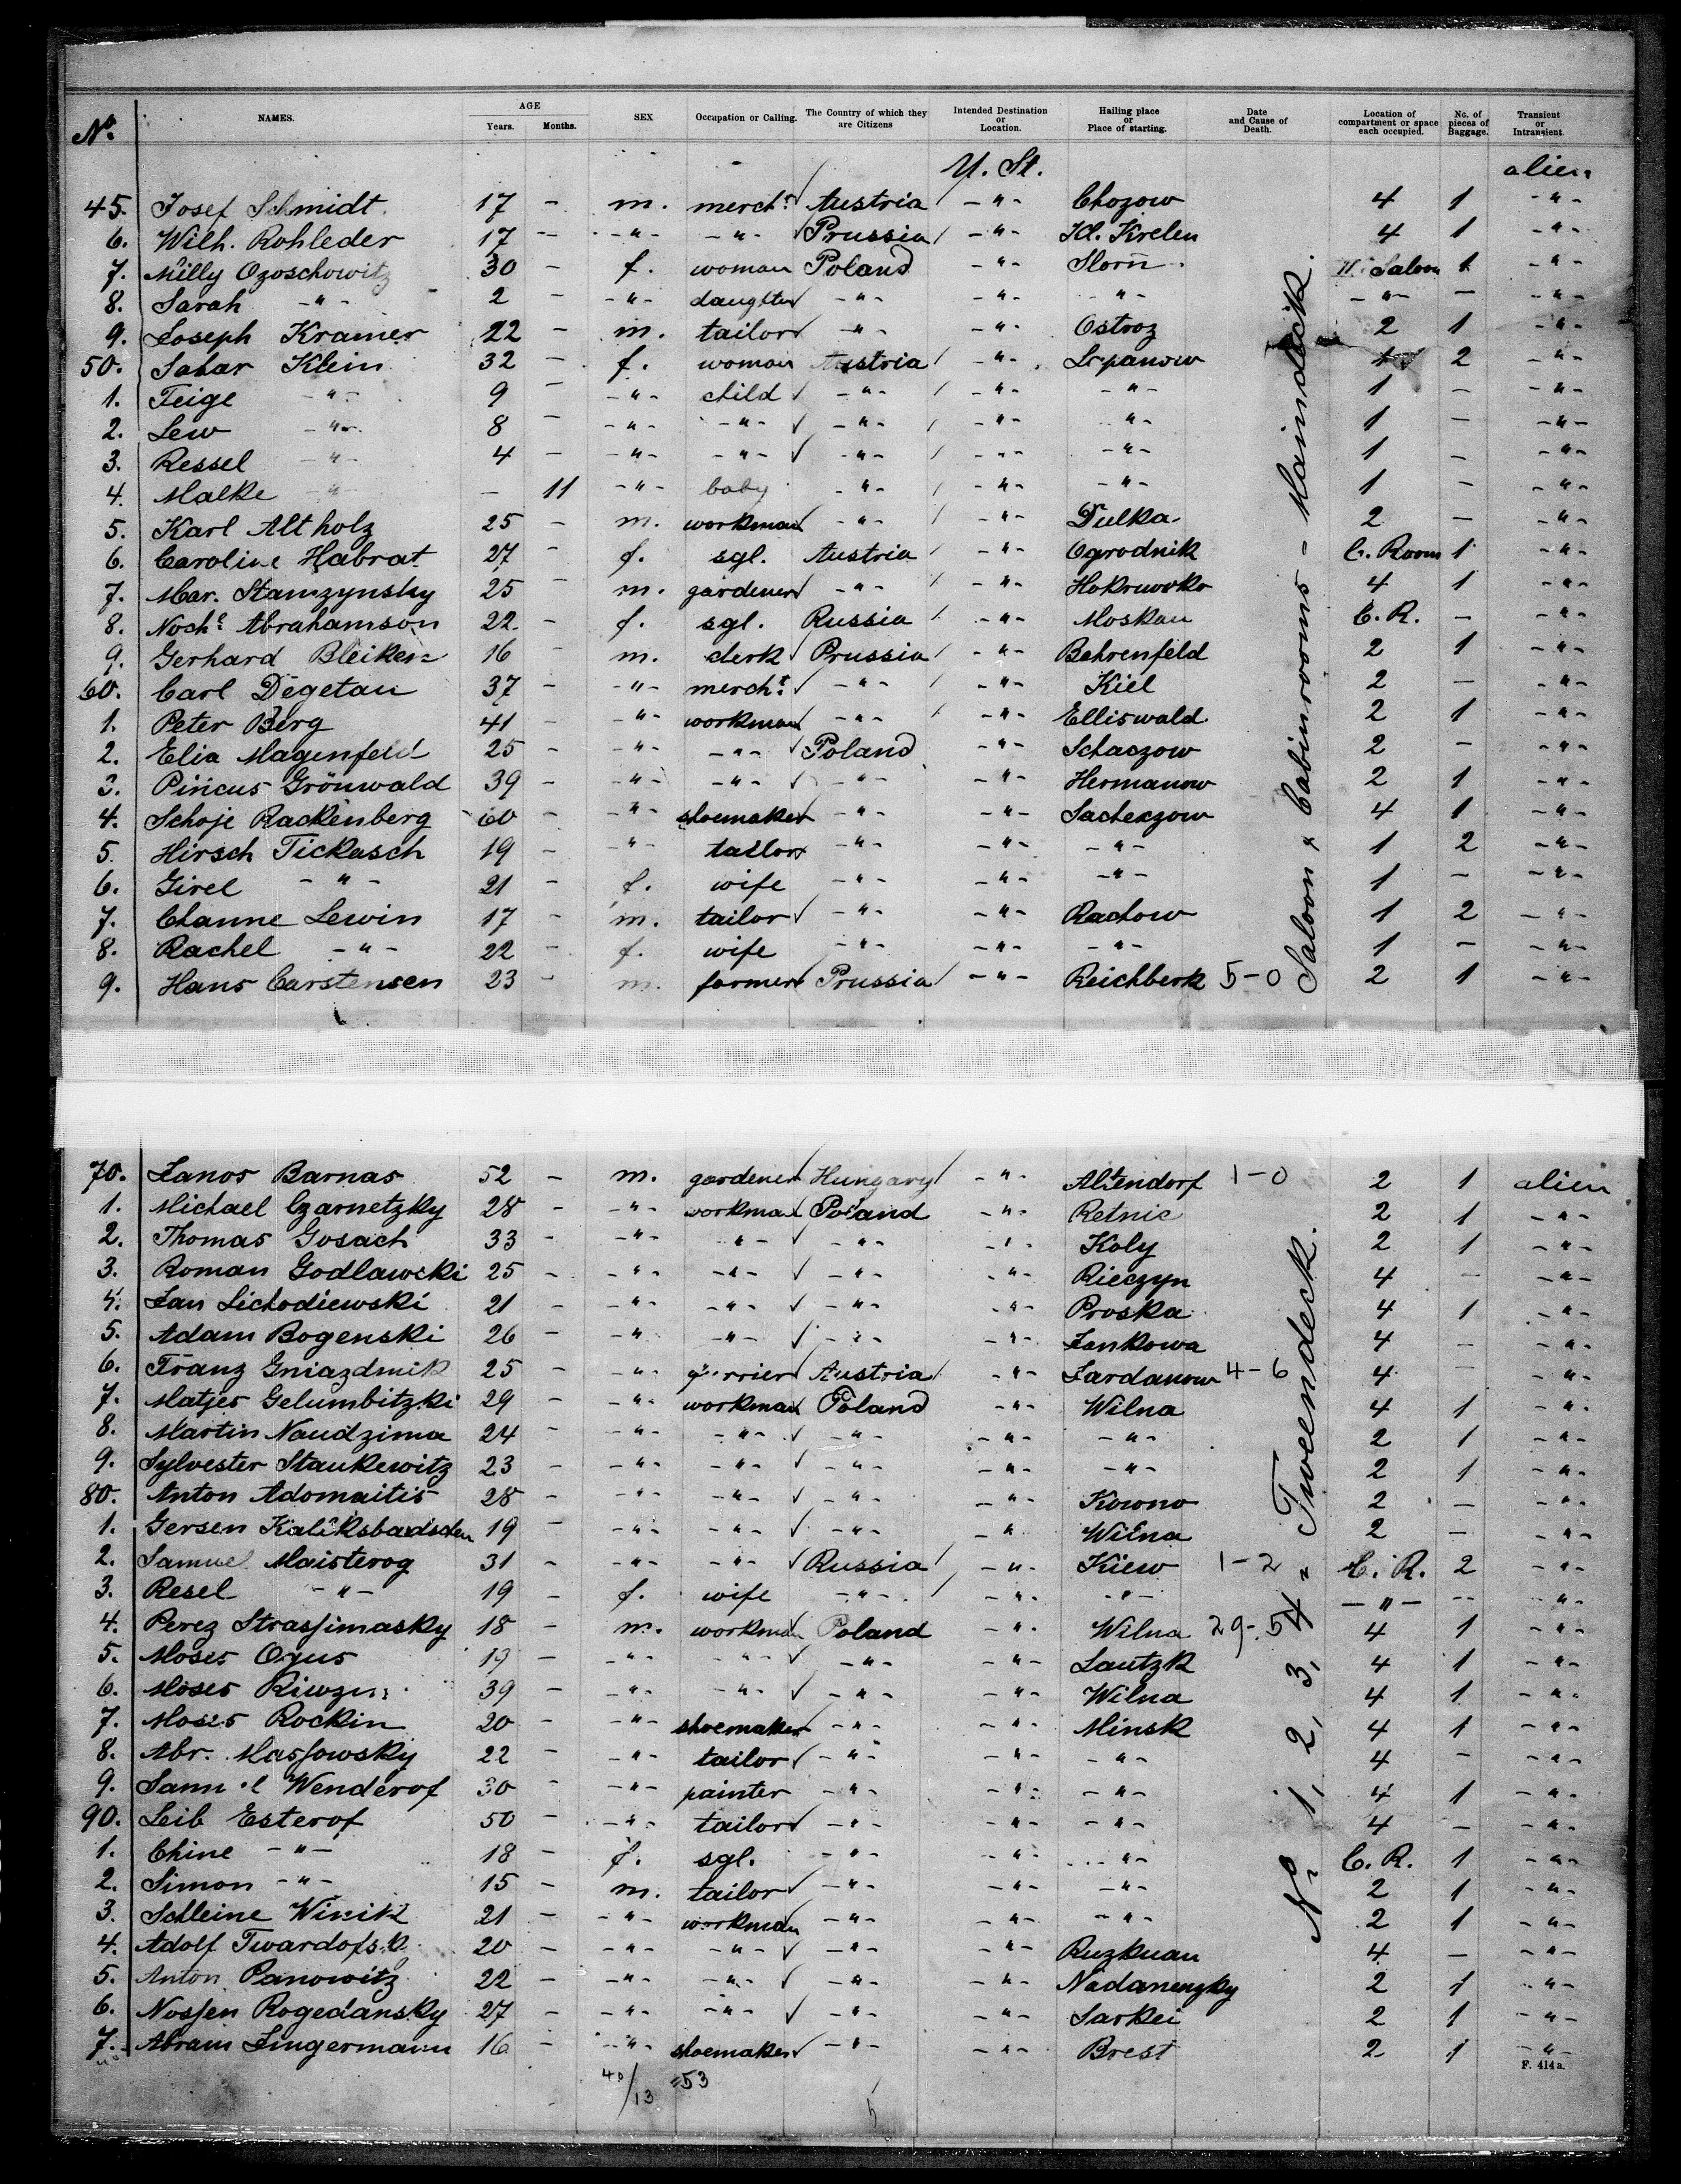 No. NAMES. AGE Years. Months. SEX Occupation or Calling. The Country of which they are Citizens Intended Destination or Location. Hailing place or Place of starting. Date and Cause of Death. Location of compartment or space each occupied. No. of pieces of Baggage. Transient or Intransient.
U. St. alien
45. Josef Schmidt 17 - m. merch.t Austria -"- Chozow 4 1 -"-
6. Wilh. Rohleder 17 - -"- -"- Prussia -"- Kl. Krelen 4 1 -"-
7. Milly Ozoschowitz 30 - f. woman Poland -"- Slorn II. Saloon 1 -"-
8. Sarah -"- 2 - -"- daughter -"- -"- -"- -"- - -"-
9. Joseph Kramer 22 - m. tailor -"- -"- Ostroz 2 1 -"-
50. Sahar Klein 32 f. woman Austria -"- Lipanow 2 -"-
1. Feige -"- 9 - -"- child -"- -"- -"- 1 - -"-
2. Lew -"- 8 -"- -"- -"- -"- -"- 1 - -"-
3. Ressel -"- 4 - -"- -"- -"- -"- -"- 1 - -"-
4. Malke -"- - 11 -"- baby -"- -"- -"- 1 - -"-
5. Karl Altholz 25 - m. workman -"- -"- Dulka 2 - -"-
6. Caroline Habrat 27 - f. sgl. Austria -"- Ogrodnik C. Room 1 -"-
7. Mar. Stamzynsky 25 - m. gardener -"- -"- 4 1 -"-
8. Noch.e Abrahamson 22 - f. sgl. Russia -"- Moskau C. R. - -"-
9. Gerhard Bleiken 16 - m. clerk Prussia -"- Bahrenfeld 2 1 -"-
60. Carl Degetau 37 - -"- merch.t -"- -"- Kiel 2 - -"-
1. Peter Berg 41 - -"- workman -"- -"- Elliswald 2 1 -"-
2. Elia Magenfeld 25 - -"- -"- Poland -"- Schaczow 2 - -"-
3. Pincus Grönwald 39 - -"- -"- -"- -"- Hermanow 2 1 -"-
4. Schoje Rackenberg 60 - -"- shoemaker -"- -"- Sacheczow 4 1 -"-
5. Hirsch Tickasch 19 - -"- tailor -"- -"- -"- 1 2 -"-
6. Girel -"- 21 - f. wife -"- -"- -"- 1 - -"-
7. Channe Lewin 17 - m. tailor -"- -"- Rachow 1 2 -"-
8. Rachel -"- 22 - f. wife -"- -"- -"- 1 - -"-
9. Hans Carstensen 23 - m. farmer Prussia -"- Reichberk 5-0 2 1 -"-
Saloon & Cabinrooms - Maindeck.
70. Janos Barnas 52 - m. gardener Hungary -"- Altendorf 1-0 2 1 alien
1. Michael Czarnetzky 28 - -"- workman Poland -"- Retnic 2 1 -"-
2. Thomas Gosach 33 - -"- -"- -"- -"- Koly 2 1 -"-
3. Roman Godlawski 25 - -"- -"- -"- -"- Rieczyn 4 - -"-
4. Jan Lichodiewski 21 - -"- -"- -"- -"- Proska 4 1 -"-
5. Adam Bogenski 26 - -"- -"- -"- -"- Jankowa 4 - -"-
6. Franz Gniazdmik 25 - -"- Austria -"- Jardanow 4-6 4 - -"-
7. Matjes Gelumbitzki 29 - -"- workman Poland -"- Wilna 4 1 -"-
8. Martin Naudzima 24 - -"- -"- -"- -"- -"- 2 1 -"-
9. Sylvester Staukewitz 23 - -"- -"- -"- -"- -"- 2 1 -"-
80. Anton Adomaitis 28 - -"- -"- -"- -"- Kowno 2 - -"-
1. Gersen Kaliksbadschen 19 - -"- -"- -"- -"- Wilna 2 - -"-
2. Samuel Maisterog 31 - -"- -"- Russia -"- Kiew 1-2 C. R. 2 -"-
3. Resel -"- 19 - f. wife -"- -"- -"- -"- - -"-
4. Perez Strassimasky 18 - m. workman Poland -"- Wilna 29-5 4 1 -"-
5. Moses Ogus 19 - -"- -"- -"- -"- Lautzk 4 1 -"-
6. Moses 39 - -"- -"- -"- -"- Wilna 4 1 -"-
7. Moses Rockin 20 - -"- shoemaker -"- -"- Minsk 4 1 -"-
8. Abr. Massowsky 22 - -"- tailor -"- -"- -"- 4 - -"-
9. Samuel Wenderof 30 - -"- painter -"- -"- -"- 4 1 -"-
90. Leib Esterof 50 - -"- tailor -"- -"- -"- 4 - -"-
1. Chine -"- 18 - f. sgl. -"- -"- -"- C. R. 1 -"-
2. Simon -"- 15 - m. tailor -"- -"- -"- 2 1 -"-
3. Schleine Winik 21 - -"- workman -"- -"- -"- 2 1 -"-
4. Adolf Twardofsk 20 - -"- -"- -"- -"- Ruzkuan 4 - -"-
5. Anton Panowitz 22 - -"- -"- -"- -"- Nadanenzky 2 1 -"-
6. Nossen Rogedansky 27 - -"- -"- -"- -"- Sarkei 2 1 -"-
7. Abram Lingermann 16 - -"- shoemaker -"- -"- Brest 2 1 -"-
No. 1, 2, 3, 4 = Tweendeck.
40/13 =53
5
F. 414 a.